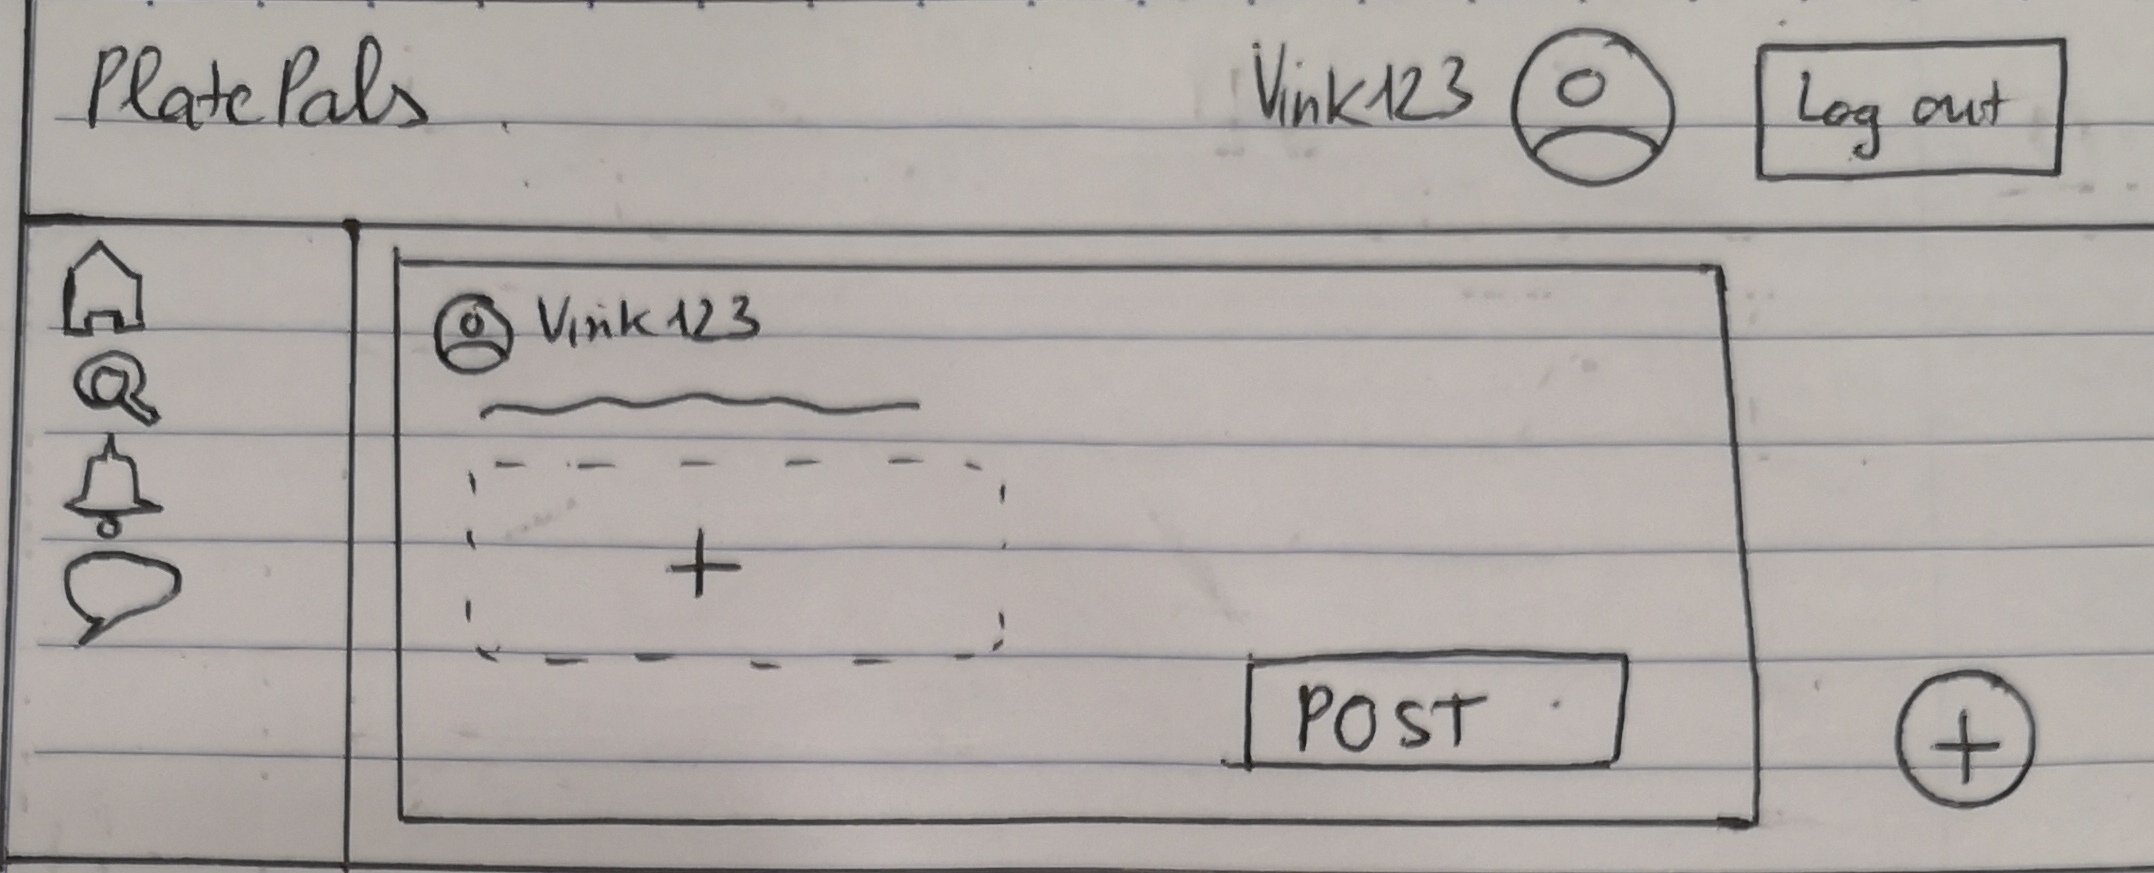 PlatePals
Vink123
Log out
Vink123
POST